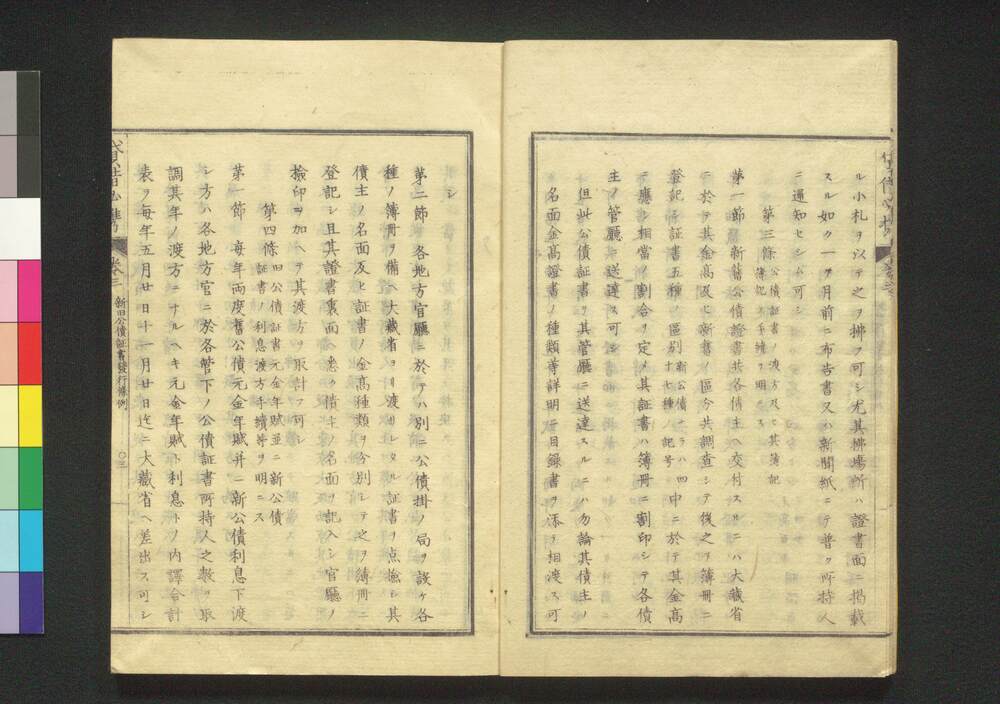 ル小札ヲ以テ之ヲ拂フ可シ尤其拂塲所ハ證書面ニ掲載
スル如ク一ヶ月前ニ布告書又ハ新聞紙ニテ普ク所持人
ニ通知セシム可シ
第三條 公債証書ノ渡方及ヒ其簿記
簿記ノ手續ヲ明ニス
第一節 新舊公債證書共各債主ヘ交付スルニハ大藏省
ニ於テ其金高及ヒ新舊ノ區分共調査シテ後之ヲ簿冊ニ
登記シ証書五種ノ區別新公債ナラハ四十七種ノ記号中ニ於テ其金高
ニ應シ相當ノ割合ヲ定メ其証書ハ簿冊ニ割印シテ各債
主ノ管廳ヘ送達ス可シ
但此公債証書ヲ其管廳ニ送達スルニハ勿論其債主ノ
名面金高證書ノ種類等詳明ノ目録書ヲ添ヲ相渡ス可
シ
第二節 各地方官廳ニ於テハ別ニ公債掛ノ局ヲ設ケ各
種ノ簿冊ヲ備ヘ大藏省ヨリ渡リシタル証書ヲ点撿シ其
債主ノ名面及ヒ証書ノ金高種類ヲ分別シテ之ヲ簿冊ニ
登記シ且其證書裏面ヘ悉ク債主ノ名面ヲ記入シ官廳ノ
撿印ヲ加ヘテ其渡方ヲ取計フ可シ
第四條 旧公債証書元金年賦並ニ新公債
証書ノ利息渡方手續等ヲ明ニス
第一節 毎年兩度舊公債元金年賦并ニ新公債利息下渡
シ方ハ各地方官ニ於テ各管下ノ公債証書所持人之數ヲ取
調其年ノ渡方ニナルヘキ元金年賦ト利息トノ内譯合計
表ヲ毎年五月廿日十一月廿日迄ニ大藏省ヘ差出ス可シ
卷三 新旧公債証書發行條例 〇三